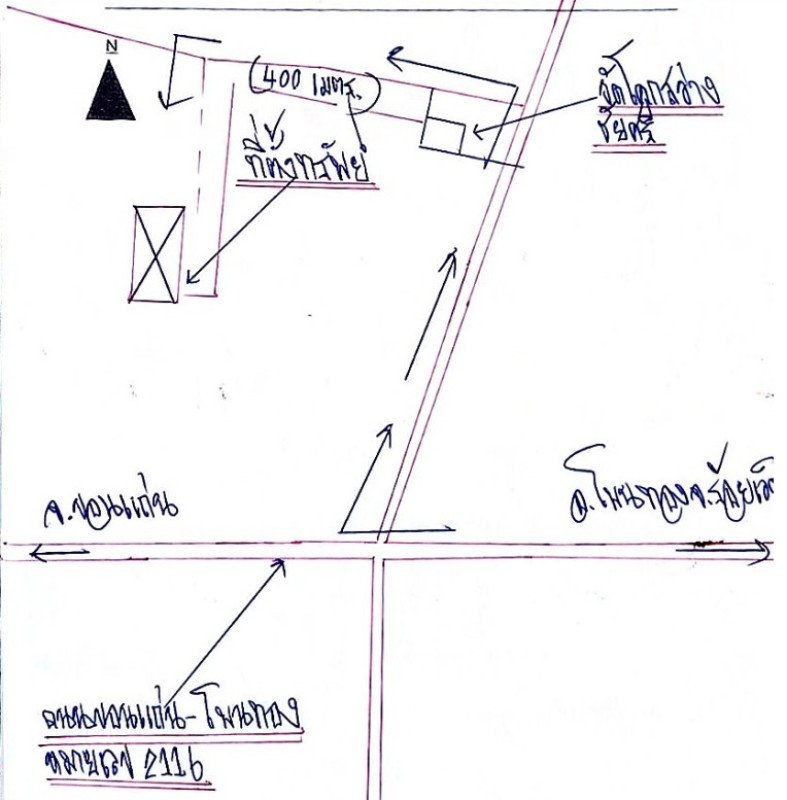 N
(400 เมตร.)
วัดโคกสว่าง
ชัยศรี
ที่ตั้งทรัพย์
จ.ขอนแก่น
อ.โพนทอง จ.ร้อยเอ็
ถนนขอนแก่น-โพนทอง
หมายเลข 2116